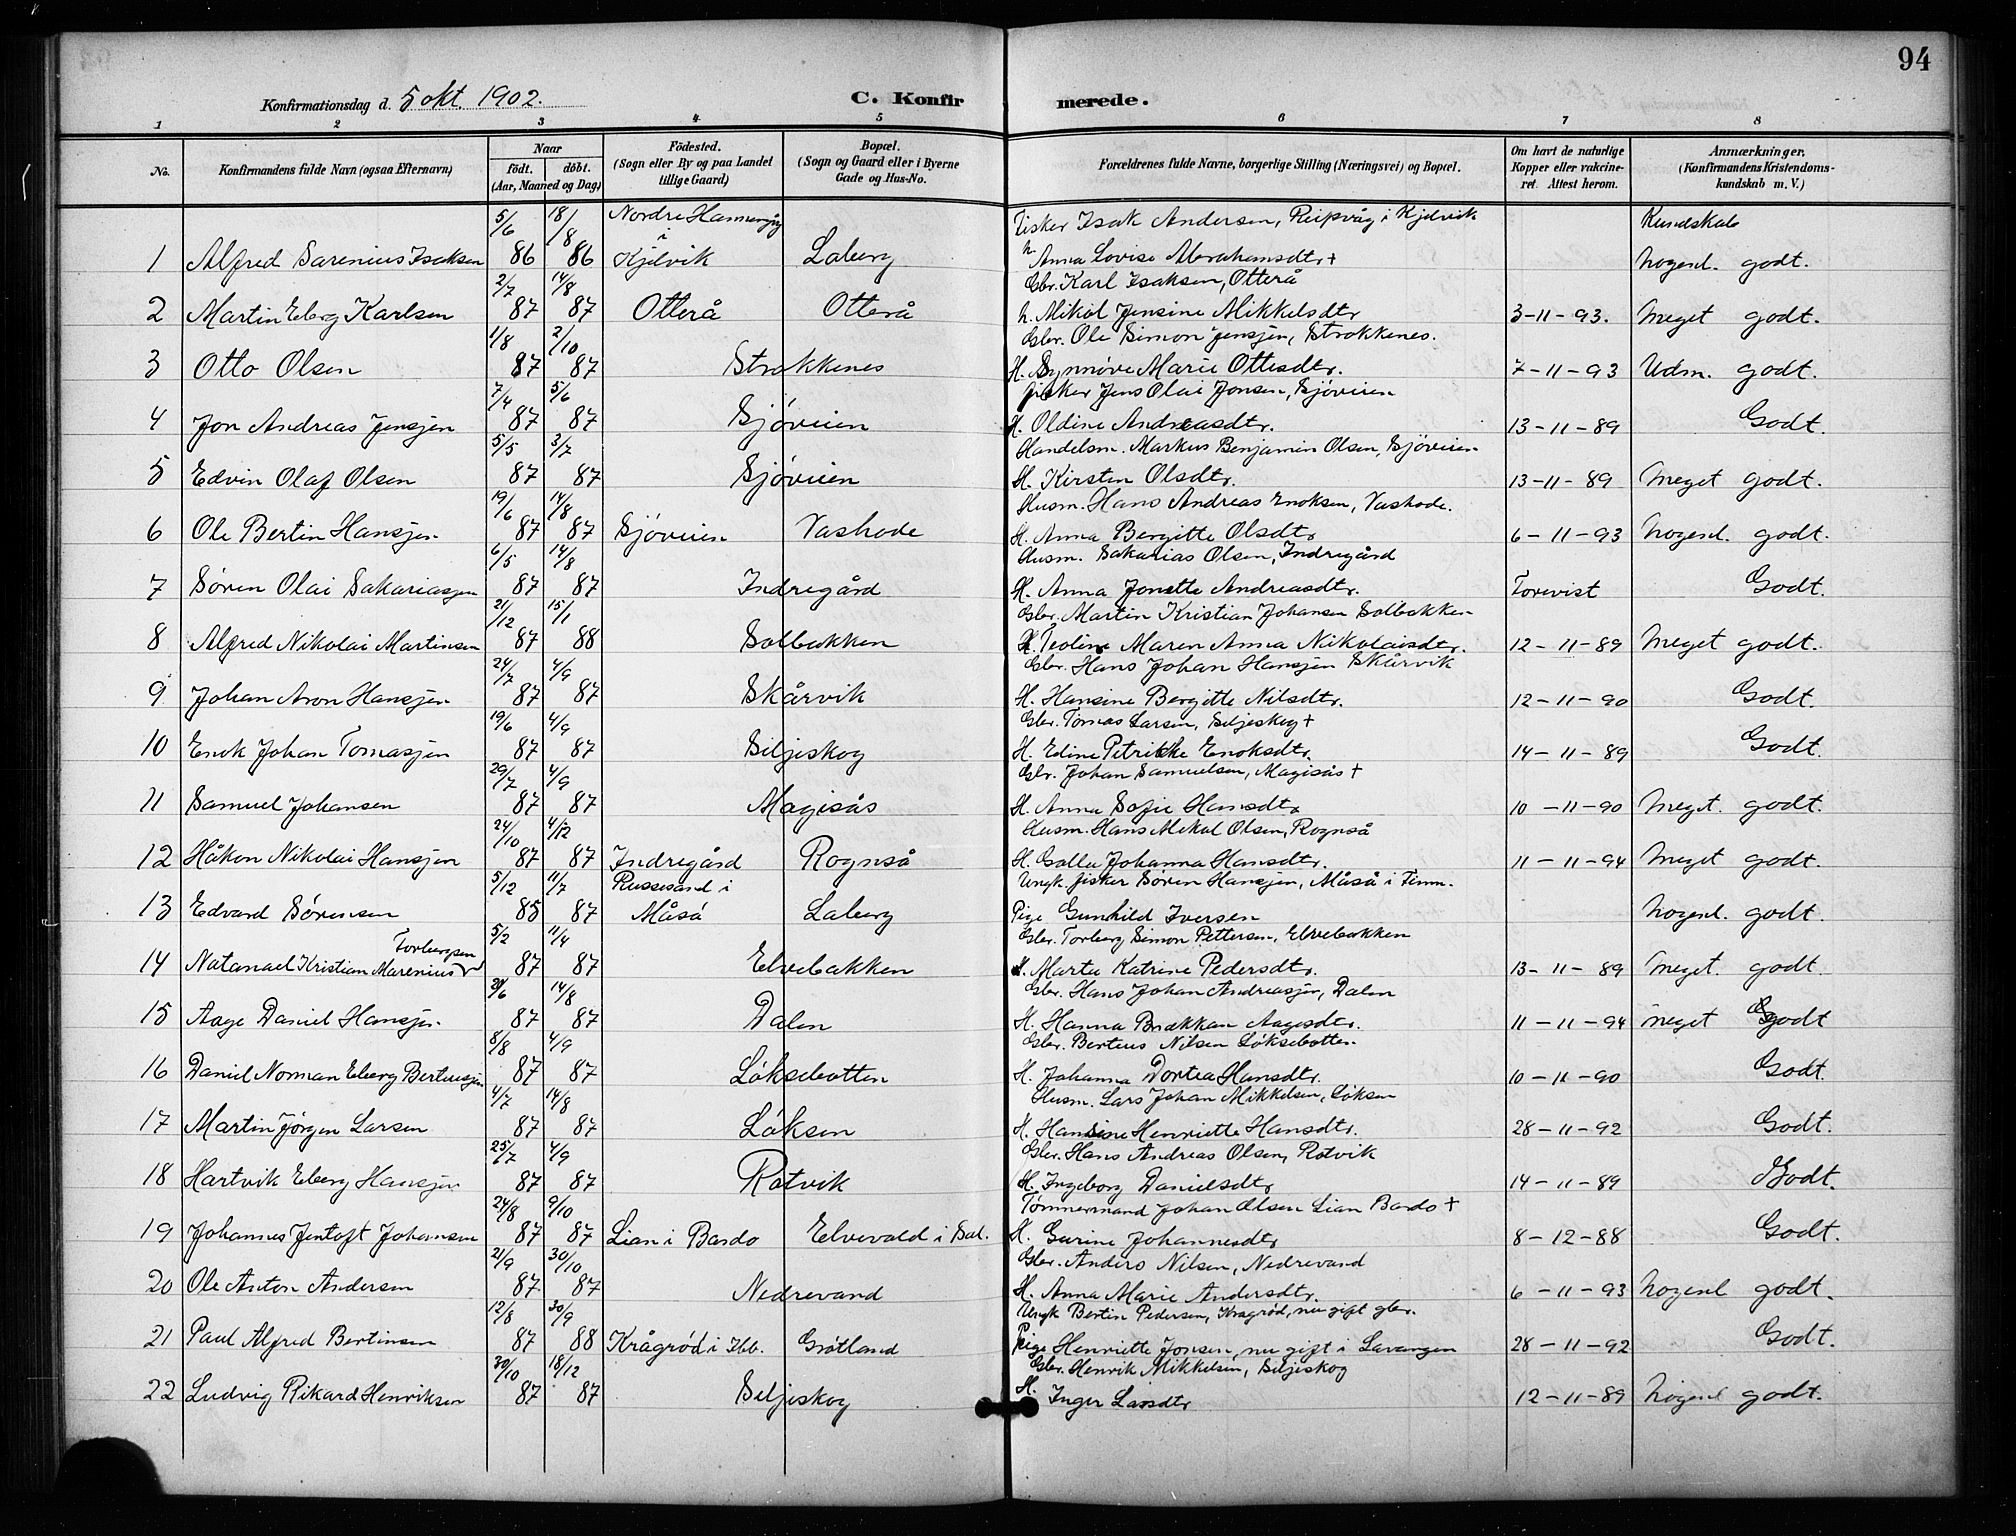 94
Konfirmationsdag d. 5 okt. 1902. C. Konfirmerede.
1 2 3 4 5 6 7 8
No. Konfirmandens fulde Navn (ogsaa Efternavn) Naar født. døbt. (Aar, Maaned og Dag) Fødested. (Sogn eller By og paa Landet tillige Gaard) Bopæl. (Sogn og Gaard eller i Byerne Gade og Hus-No. Forældrenes fulde Navne, borgerlige Stilling (Næringsvei) og Bopæl. Om havt de naturlige Kopper eller vakcineret. Attest herom. Anmærkninger. (Konfirmandens Kristendomskundskab m. V.)
5/6 18/8 Nordre Fisker Isak Andersen, Reipvåg i Kjelvik Kundskab
1 Alfred Sarenius Isaksen 86 86 i Kjelvik Laberg h. Anna Lovise Abrahamsdtr +  nogenl. godt.
2/7 14/8 Gbr. Karl Isaksen, Otterå
2 Martin Eberg Karlsen 87 87 Otterå Otterå h. Mikal Jensine Mikkelsdtr 3-11-93. Meget godt.
1/8 2/10 Gbr. Ole Simon Jensjen, Strokkenes.
3 Otto Olsen 87 87 Strokkenes H. Synnøve Marie Ottesdtr. 7-11-93 Udm. godt.
7/4 5/6 fisker Jens Olai Jonsen, Sjøveien
4 Jon Andreas Jensjen 87 87 Sjøveien H. Oldine Andreasdtr. 13-11-89 Godt.
5/5 3/7 Handelsm. Markus Benjamin Olsen, Sjøveien
5 Edvin Olaf Olsen 87 87 Sjøveien H. Kirsten Olsdtr. 13-11-89 Meget godt.
19/6 14/8 Husm. Hans Andreas Enoksen, Vashode.
6 Ole Bertin Hansjen 87 87 Sjøveien Vashode H. Anna Bergitte Olsdtr 6-11-93 nogenl. godt.
6/5 14/8 Husm. Sakarias Olsen, Indregård
7 Søren Olai Sakariasjen 87 87 Indregård H. Anna Jonette Andreasdtr. Forevist Godt.
21/12 15/1 Gbr. Martin Kristian Johansen Solbakken
8 Alfred Nikolai Martinsen 87 88 Solbakken H. Teoline Maren Anna Nikolaisdtr. 12-11-89 Meget godt.
24/7 4/9 Gbr. Hans Johan Hansjen Skårvik
9 Johan Aron Hansjen 87 87 Skårvik H. Hansine Bergitte Nilsdtr. 12-11-90 Godt.
19/6 4/9 Gbr. Tomas Larsen, Siljeskog +
10 Enok Johan Tomasjen 87 87 Siljeskog H. Edine Petrikke Enoksdtr. 14-11-89 Godt.
29/7 4/9 Gbr. Johan Samuelsen, Magisås +
11 Samuel Johansen 87 87 Magisås H. Anna Sofie Hansdtr 10-11-90 Meget. godt.
24/10 4/12 Husm. Hans Mikal Olsen, Rognså
12 Håkon Nikolai Hansjen 87 87 Indregård Rognså H. Golla Johanna Hansdtr. 11-11-94 Meget godt.
5/12 11/7 Russesand i Ungk. fisker Søren Hansjen, Måså i Finm.
13 Edvard Sørensen 85 87 Måsö Laberg Pige Gunhild Iversen nogenl. godt.
5/2 11/4 Torbergsen Gbr. Torberg Simon Pettersen, Elvebakken
14 Natanael Kristian Marenius 87 87 Elvebakken H. Marta Katrine Pedersdtr. 13-11-89 Meget. godt.
29/6 14/8 Gbr. Hans Johan Andreasjen, Dalen
15 Aage Daniel Hansjen 87 87 Dalen H. Hanna Brækkan Aagesdtr. 11-11-94 meget godt
8/8 4/9 Gbr. Berteus Nilsen Løksebotten
16 Daniel Norman Eberg Berteusjen 87 87 Løksebotten H. Johanna Dortea Hansdtr. 10-11-90 Godt.
4/7 14/8 Husm. Lars Johan Mikkelsen, Løksen
17 Martin Jørgen Larsen 87 87 Løksen H. Hansine Henriette Hansdtr. 28-11-92 Godt.
25/7 4/9 Gbr. Hans Andreas Olsen, Rotvik
18 Hartvik Eberg Hansjen 87 87 Rotvik H. Ingeborg Danielsdtr 14-11-89 Godt.
24/8 9/10 Tømmermand Johan Olsen Lian Bardo +
19 Johannes Jentoft Johansen 87 87 Lian i Bardo Elvevold i Sal. H. Gurine Johannesdtr 8-12-88 Godt.
21/9 30/10 Gbr. Anders Nilsen, Nedrevand
20 Ole Anton Andersen 87 87 Nedrevand H. Anna Marie Andersdtr. 6-11-93 nogenl godt.
12/8 30/9 Ungk Bertin Pedersen, Kragrød, nu gift gbr.
21 Paul Alfred Bertinsen 87 88 Krågrød i Ibb. Grøtland Pige Henriette Jonsen, nu gift i Lavangen 28-11-92 Godt.
30/10 18/12 Gbr. Henrik Mikkelsen, Siljeskog
22 Ludvig Rikard Henriksen 87 87 Siljeskog H. Inger Larsdtr 12-11-89 nogenl godt.